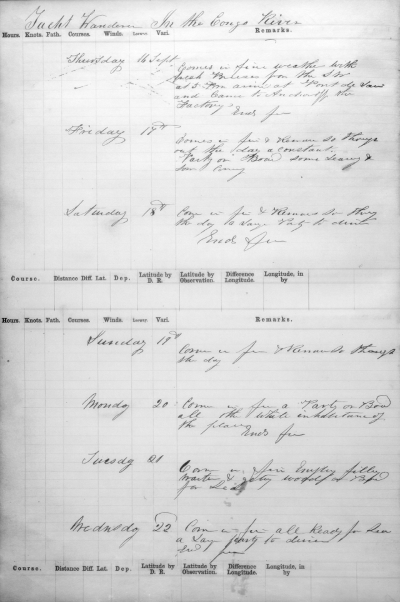 Yacht Wanderer In the Congo River
Hours. Knots. Fath. Courses. Winds. Leeway. Vari. Remarks.
Thursday 16 Sept
Comes in fine weather with
fresh Breeze from the SW
at 5 Pm at Point de
and Came to Anchor off the
Factory
Ends fin
Friday 17th
Comes in fin & Remans so through
out the day a constant
Party on Board some &
som
Saturday 18th
Com in fin & Remans so throu
the day a Large Party to diner
Ends fin
Course. Distance Diff. Lat. Dep. Latitude by D. R. Latitude by Observation. Difference Longitude. Longitude, in by
Hours. Knots. Fath. Courses. Winds. Leeway. Vari. Remarks.
Sunday 19th
Comes in fin & Reman so through
the day
Monday 20
Coms in fin a Party on Bord
all the White inhabitance of
the place
Ends fin
Tuesday 21
Com in fin filling
water & woods on Bord
for Sea
Wednsday 22
Com in fin all Ready for Sea
a Larg party to diner
End fin
Course. Distance Diff. Lat. Dep. Latitude by D. R. Latitude by Observation. Difference Longitude. Longitude, in by